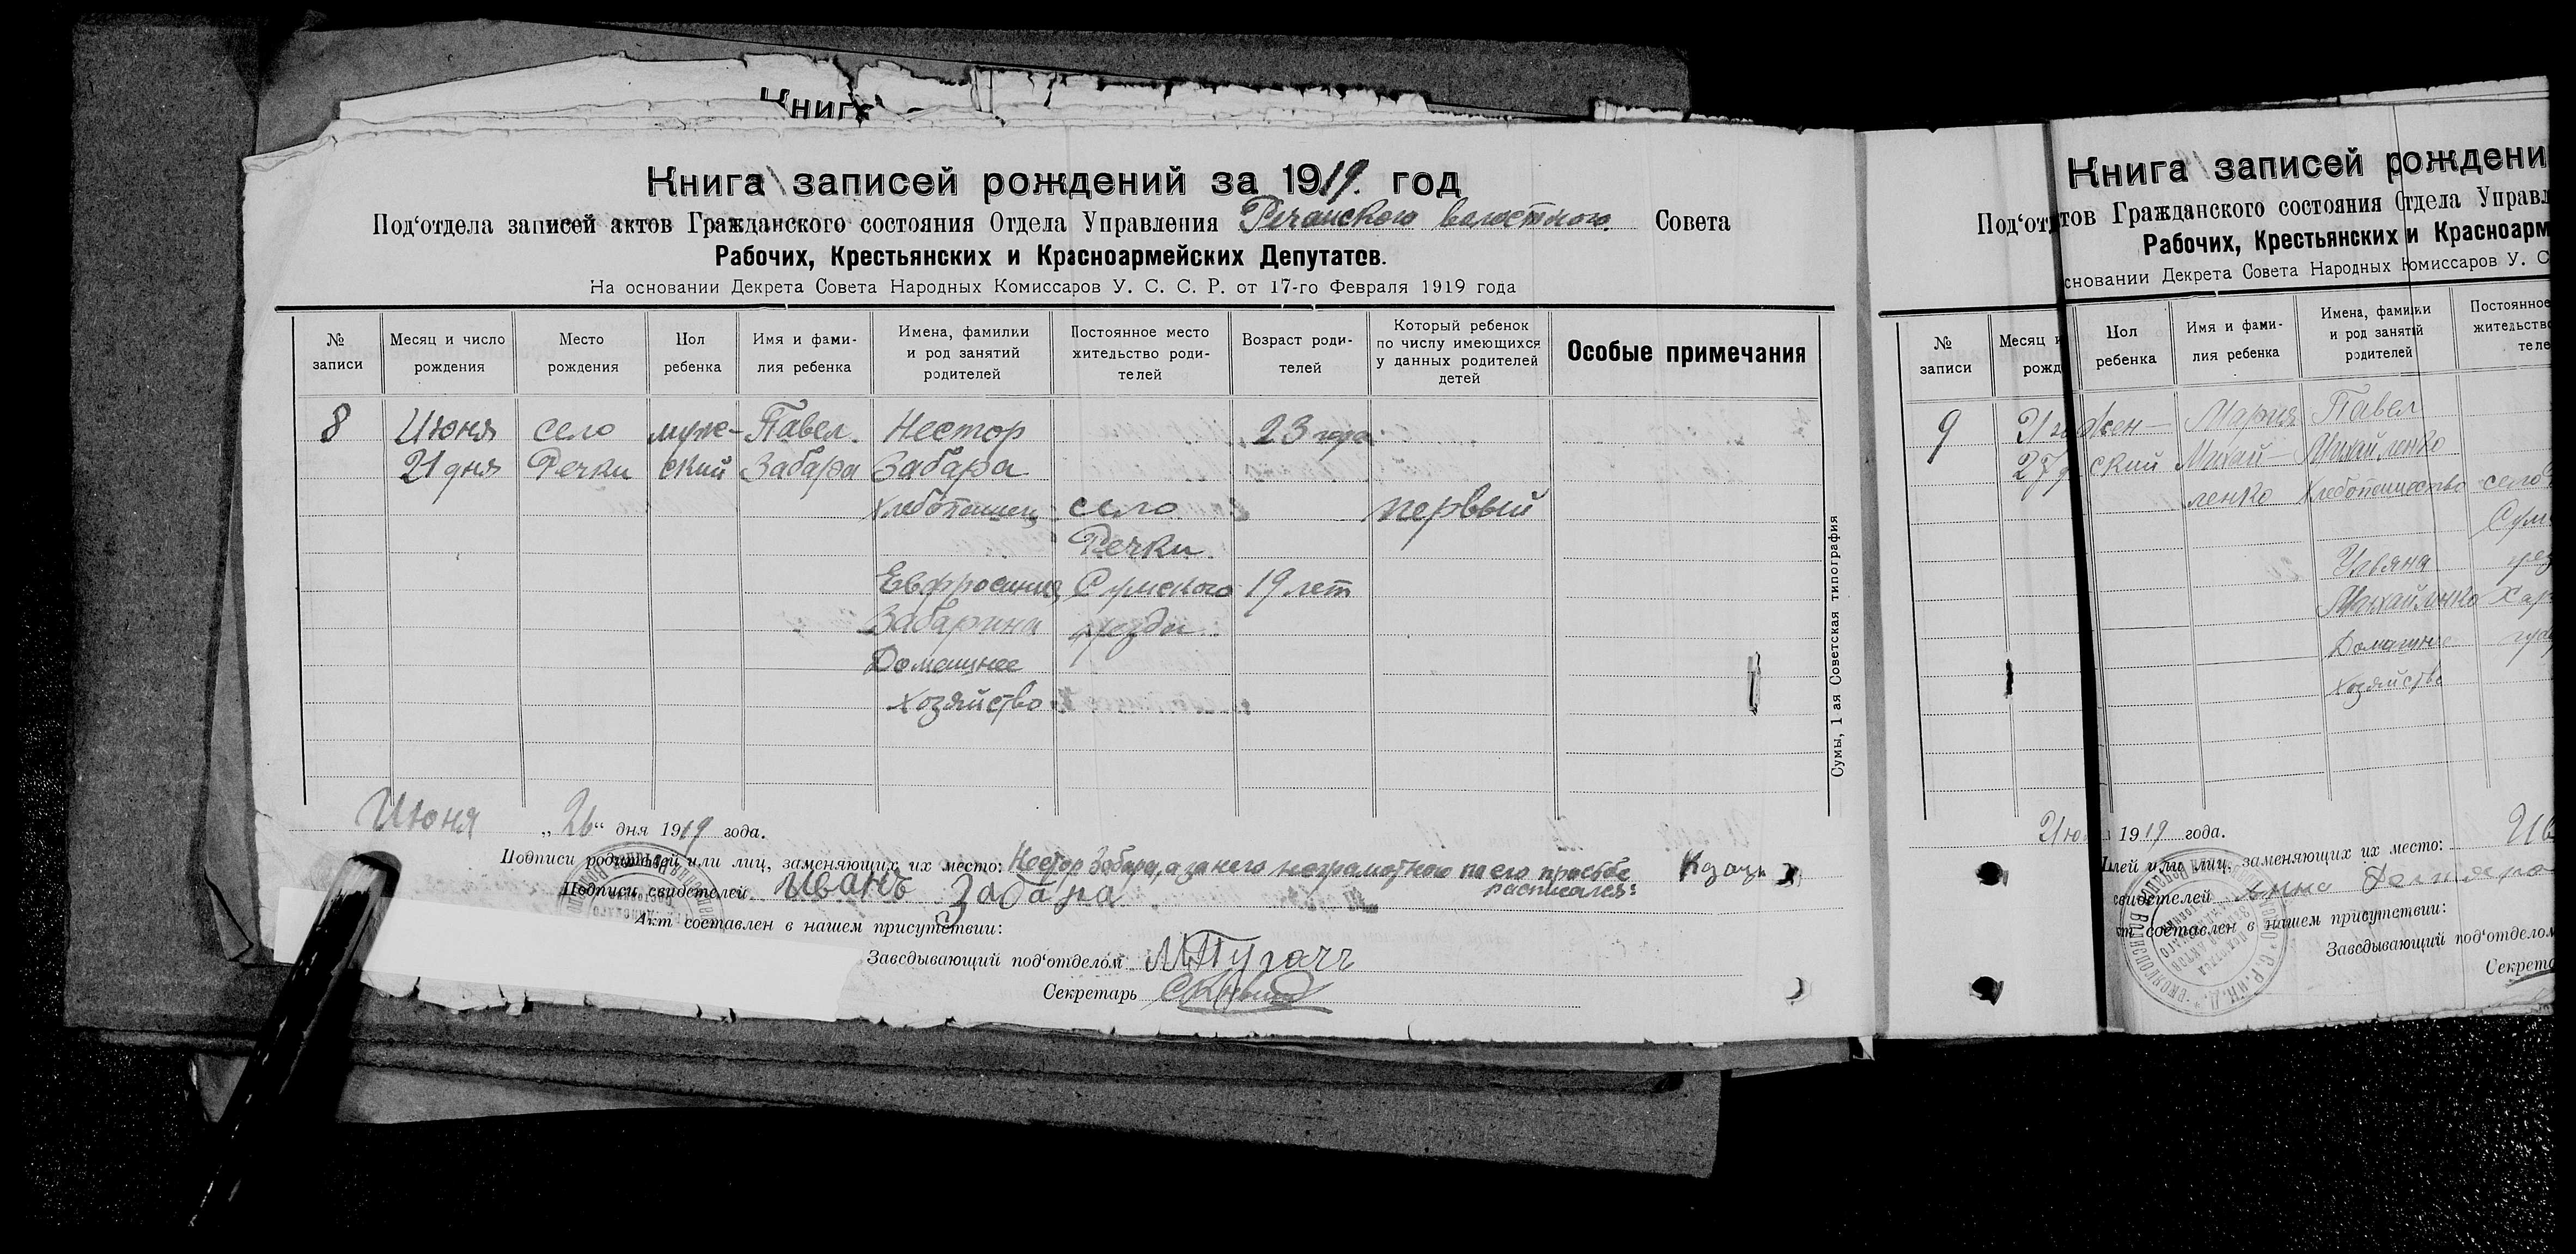 Книга
Книга записей рождений за 1919. год
Под‘отдела записей актов Гражданского состояния Отдела Управления Речанского волостного. Совета
Рабочих, Крестьянских и Красноармейских Депутатов.
На основании Декрета Совета Народных Комиссаров У. С. С. Р. от 17-го Февраля 1919 года
№ записи
Месяц и число рождения
Место рождения
Пол ребенка
Имя и фами-
лия ребенка
Имена, фамилии
и род занятий
родителей
Постоянное место
жительство роди-
телей
Возраст роди-
телей
Который ребенок
по числу имеющихся
у данных родителей
детей
Особые примечания
8 Июня село муж- Павел. Нестор 23 года
21 дня Речки ский Забара Забара
Хлебопашец село первый
Речки
Евфросиния Сумского 19 лет
Забарина уезда
Домашнее
хозяйство
Июня „26“ дня 1919 года.
Подписи родителей или лиц, заменяющих их место: Нестор Забара, а за него неграмотного по его просьбе
расписался:
Подписи свидетелей Иванъ Забара
Акт составлен в нашем присутствии:
Заведывающий под‘отделом М Пугачъ
Секретарь
Сумы, 1 ая Советская типография
Книга записей рождени
Под‘от тов Гражданского состояния Отдела Управл
Рабочих, Крестьянских и Красноарм
сновании Декрета Совета Народных Комиссаров У. С
№ записи
Месяц и
рожд
Пол ребенка
Имя и фами-
лия ребенка
Имена, фамилии
и род занятий
родителей
Постоянное
жительство
теле
9 Жен- Мария Павел
27 ский Михай- Михайленко
ленко Хлебопашество село
Сум
Ульяна уез
Михайленко Хар
Домашнее
хозяйство
1919 года.
лей или лиц, заменяющих их место:
свидетелей Анна
т составлен в нашем присутствии:
Заведывающий под‘отделом
Секрета